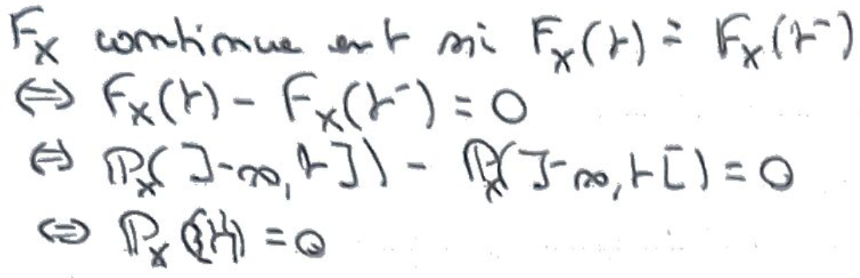 F_X continue en t si F_X(t) = F_X(t⁻)
⇔ F_X(t) - F_X(t⁻) = 0
⇔ ℙ_X(]-∞,t]) - ℙ_X(]-∞,t[) = 0
⇔ ℙ_X({t}) = 0